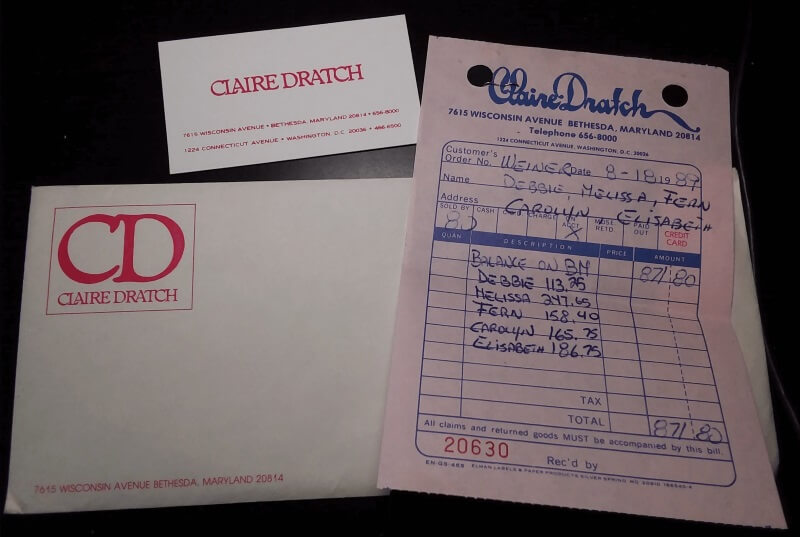 CLAIRE DRATCH
7615 WISCONSIN AVENUE • BETHESDA, MARYLAND 20814 • 656-8000
1224 CONNECTICUT AVENUE • WASHINGTON, D.C. 20036 • 466-6500
CD
CLAIRE DRATCH
7615 WISCONSIN AVENUE BETHESDA, MARYLAND 20814
Claire Dratch
7615 WISCONSIN AVENUE BETHESDA, MARYLAND 20814
Telephone 656-8000
1224 CONNECTICUT AVENUE, WASHINGTON, D.C. 20036
Customer's Order No. WEINER Date 8-18 1989
Name DEBBIE, MELISSA, FERN
Address CAROLYN, ELISABETH
SOLD BY CASH CHARGE ON ACCT. MDSE RETD PAID OUT CREDIT CARD
X
QUAN. DESCRIPTION PRICE AMOUNT
BALANCE ON BM 871.80
DEBBIE 113.25
MELISSA 247.65
FERN 158.40
CAROLYN 165.75
ELISABETH 186.75
TAX
TOTAL 871.80
All claims and returned goods MUST be accompanied by this bill.
20630 Rec'd by
ELMAN LABELS & PAPER PRODUCTS SILVER SPRING MD 20910